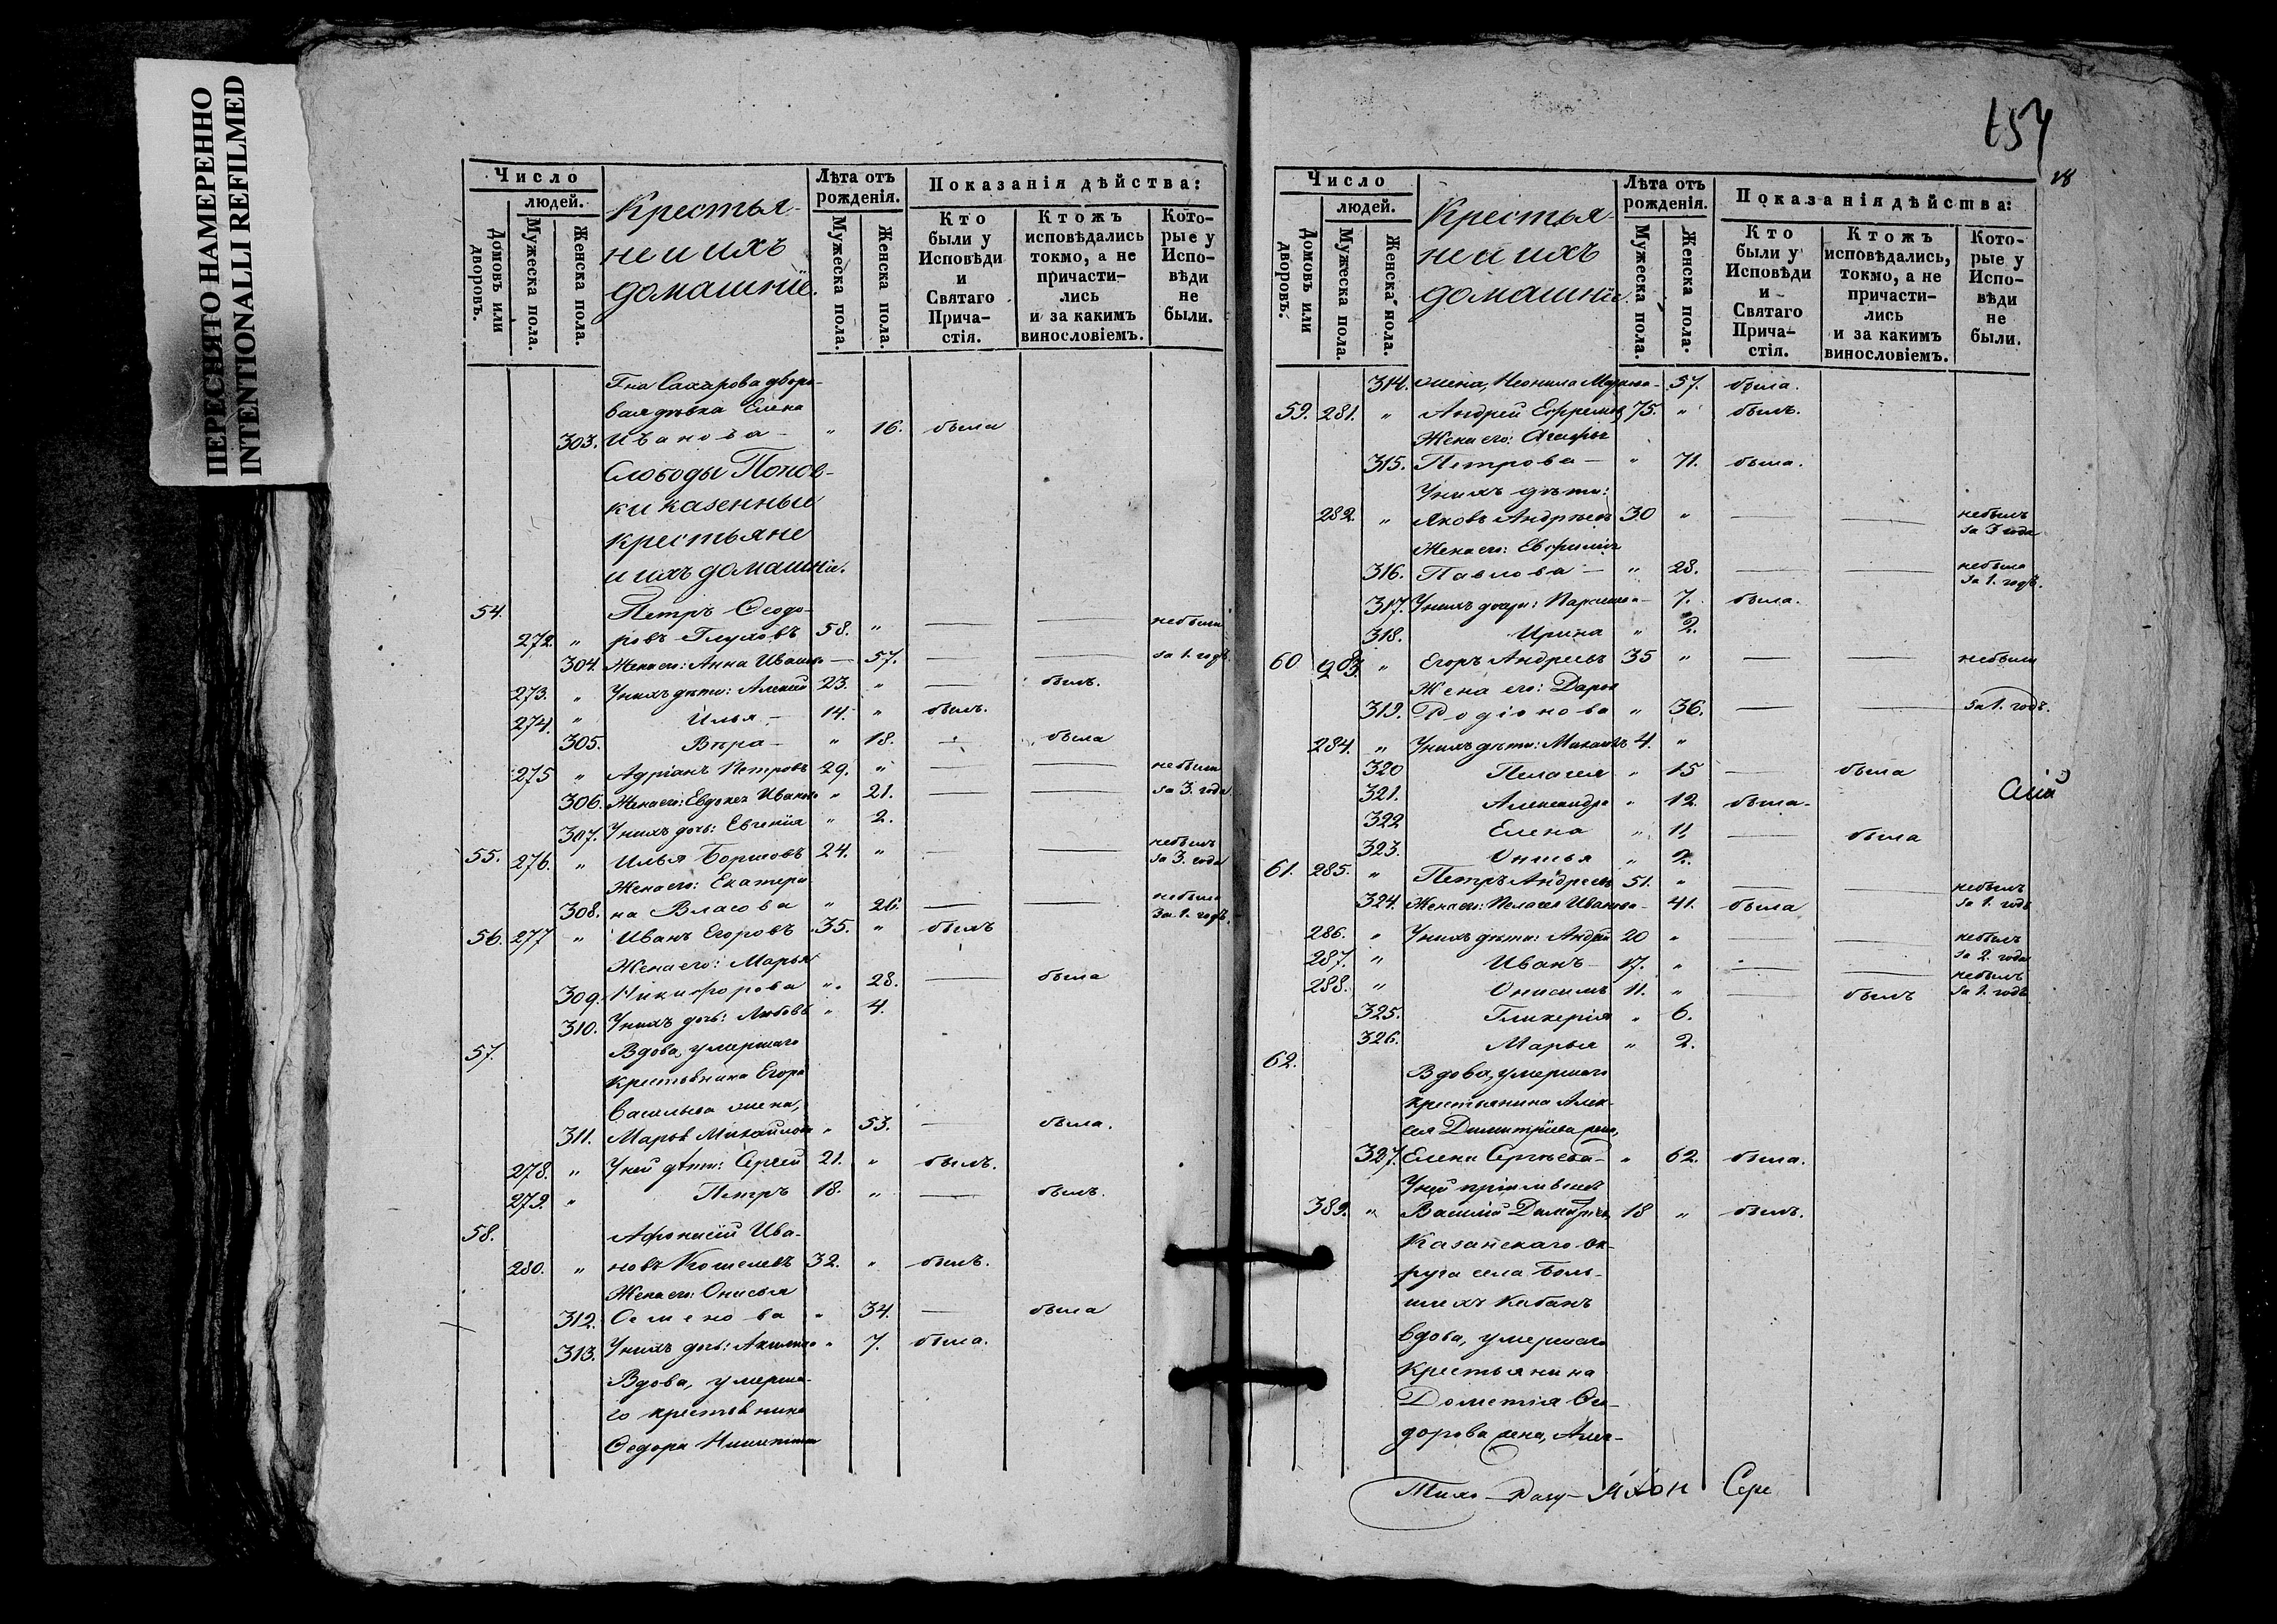 ПЕРЕСНЯТО НАМЕРЕННО
INTENTIONALLI REFILMED
Число
людей.
Домовъ или дворовъ.
Мужеска пола.
Женска пола.
Крестья-
не и ихъ
домашніе.
Лѣта отъ рожденія.
Мужеска пола.
Женска пола.
Показанія дѣйства:
Кто были у Исповѣди и Святаго Прича-стія.
Ктожъ исповѣдались токмо, а не причасти-лись и за какимъ винословіемъ.
Кото-рые у Испо-вѣди не были.
Гна Сахарова дворо-
вая дѣвка Елена
303. Иванова — " 16. была
Слободы Попов-
ки казенные
крестьяне
и ихъ домашніе.
54. Петръ Ѳеодо-
272. " ровъ Глуховъ 58. " — — небыли
304. Жена его: Анна Иванова — 57. — — за 1. годъ.
273. " У нихъ дѣти: Алексей 23. " — былъ.
274. " Илья — 14. " былъ.
305. Вѣра — " 18. — была
275 " Адріанъ Петровъ 29. " — — небыли
306. Жена его: Евдокея Иванова " 21. — — за 3. года
307. У нихъ дочь: Евгенія " 2.
55. 276. " Илья Борисовъ 24. " — — небылъ за 3. года
Жена его: Екатери-
308. на Власова " 26. — — небыла за 1. годъ.
56. 277 " Иванъ Егоровъ 35. " былъ
Жена его: Марья
309. Никифорова " 28. — была
310. У нихъ дочь: Любовь " 4.
57. Вдова, умершаго
крестьянина Егора
Васильева жена,
311. Марья Михайлова " 53. — была.
278. " У ней дѣти: Сергей 21. " былъ.
279. " Петръ 18. " — былъ.
58. Афонасій Ива-
280. " новъ Кошелевъ 32. " былъ.
Жена его: Онисья
312. Семенова " 34. — была
313. У нихъ дочь: Акилина " 7. была.
Вдова, умерша-
го крестьянина
Ѳедора Никитина
154
18
Число
людей.
Домовъ или дворовъ.
Мужеска пола.
Женска пола.
Крестья-
не и ихъ
домашніе.
Лѣта отъ рожденія.
Мужеска пола.
Женска пола.
Показанія дѣйства:
Кто были у Исповѣди и Святаго Прича-стія.
Ктожъ исповѣдались, токмо, а не причасти-лись и за какимъ винословіемъ.
Кото-рые у Испо-вѣди не были.
314. жена, Неонила — 57. была.
59. 281. " Андрей Ефремовъ 75. " былъ.
Жена его: Агафья
315. Петрова — " 71. была.
У нихъ дѣти:
282. " Яковъ Андреевъ 30 " — — небылъ за 3 года
Жена его: Евфимія
316. Павлова — " 28. — — небыла за 1. годъ.
317. У нихъ дочери: — 7. была.
318. Ирина " 2.
60 283. " Егоръ Андреевъ 35 " — — небыли
Жена его: Дарья
319. Родіонова " 36. — — за 1. годъ.
284. " У нихъ дѣти: Михаилъ 4. "
320 Пелагея " 15 — была
321. Александра " 12. была.
322 Елена " 11 — была
323. Онисья " 2.
61. 285. " Петръ Андреевъ 51. " — — небылъ
324. Жена его: Пелагея Иванова — 41. была за 1. годъ
286. " У нихъ дѣти: Андрей 20 " — — небылъ за 2. года
287. " Иванъ — 17. " — — небылъ за 1. годъ
288. " Онисимъ 11. " — былъ
325. Гликерія " 6.
326. Марья " 2.
62. Вдова, умершаго
крестьянина Алек-
сея Димитріева жена,
327. Елена Сергѣева — " 62. была.
У ней
389. " Василій 18 " былъ.
Казанскаго ок-
руга села Боль-
шихъ Кабанъ
вдова, умершаго
крестьянина
Дометія Си-
дорова жена,